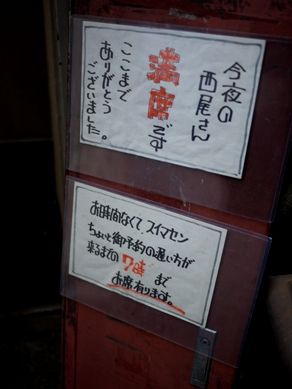 今夜の
西尾さん
満席です
ここまで
ありがとう
ございました。
お時間なくて、スイマセン
ちょいと御予約の遅い方が
来るまでの 7時 まで
お席有ります。